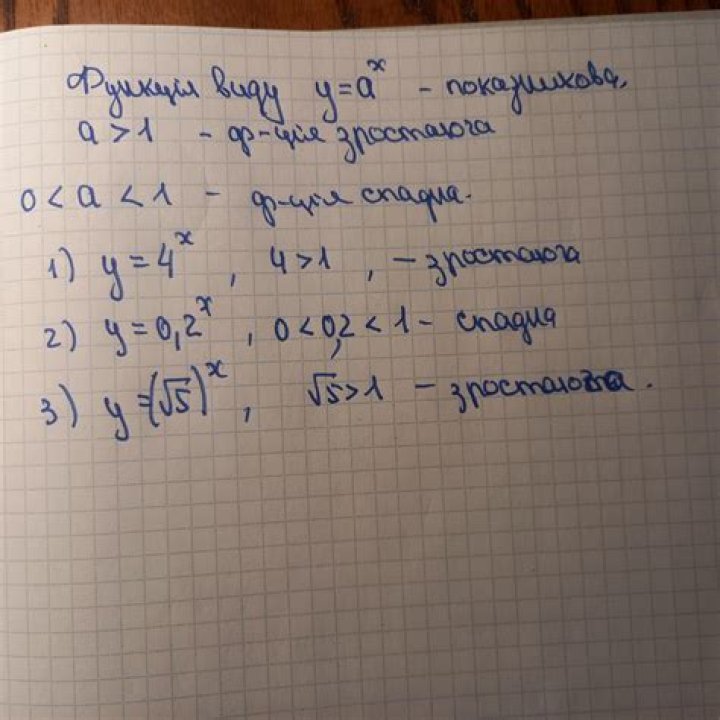 Функція виду y=aˣ - показникова,
a>1 - ф-ція зростаюча
0<a<1 - ф-ція спадна.
1) y=4ˣ, 4>1, - зростаюча
2) y=0,2ˣ, 0<0,2<1 - спадна
3) y=(√5)ˣ, √5>1 - зростаюча.